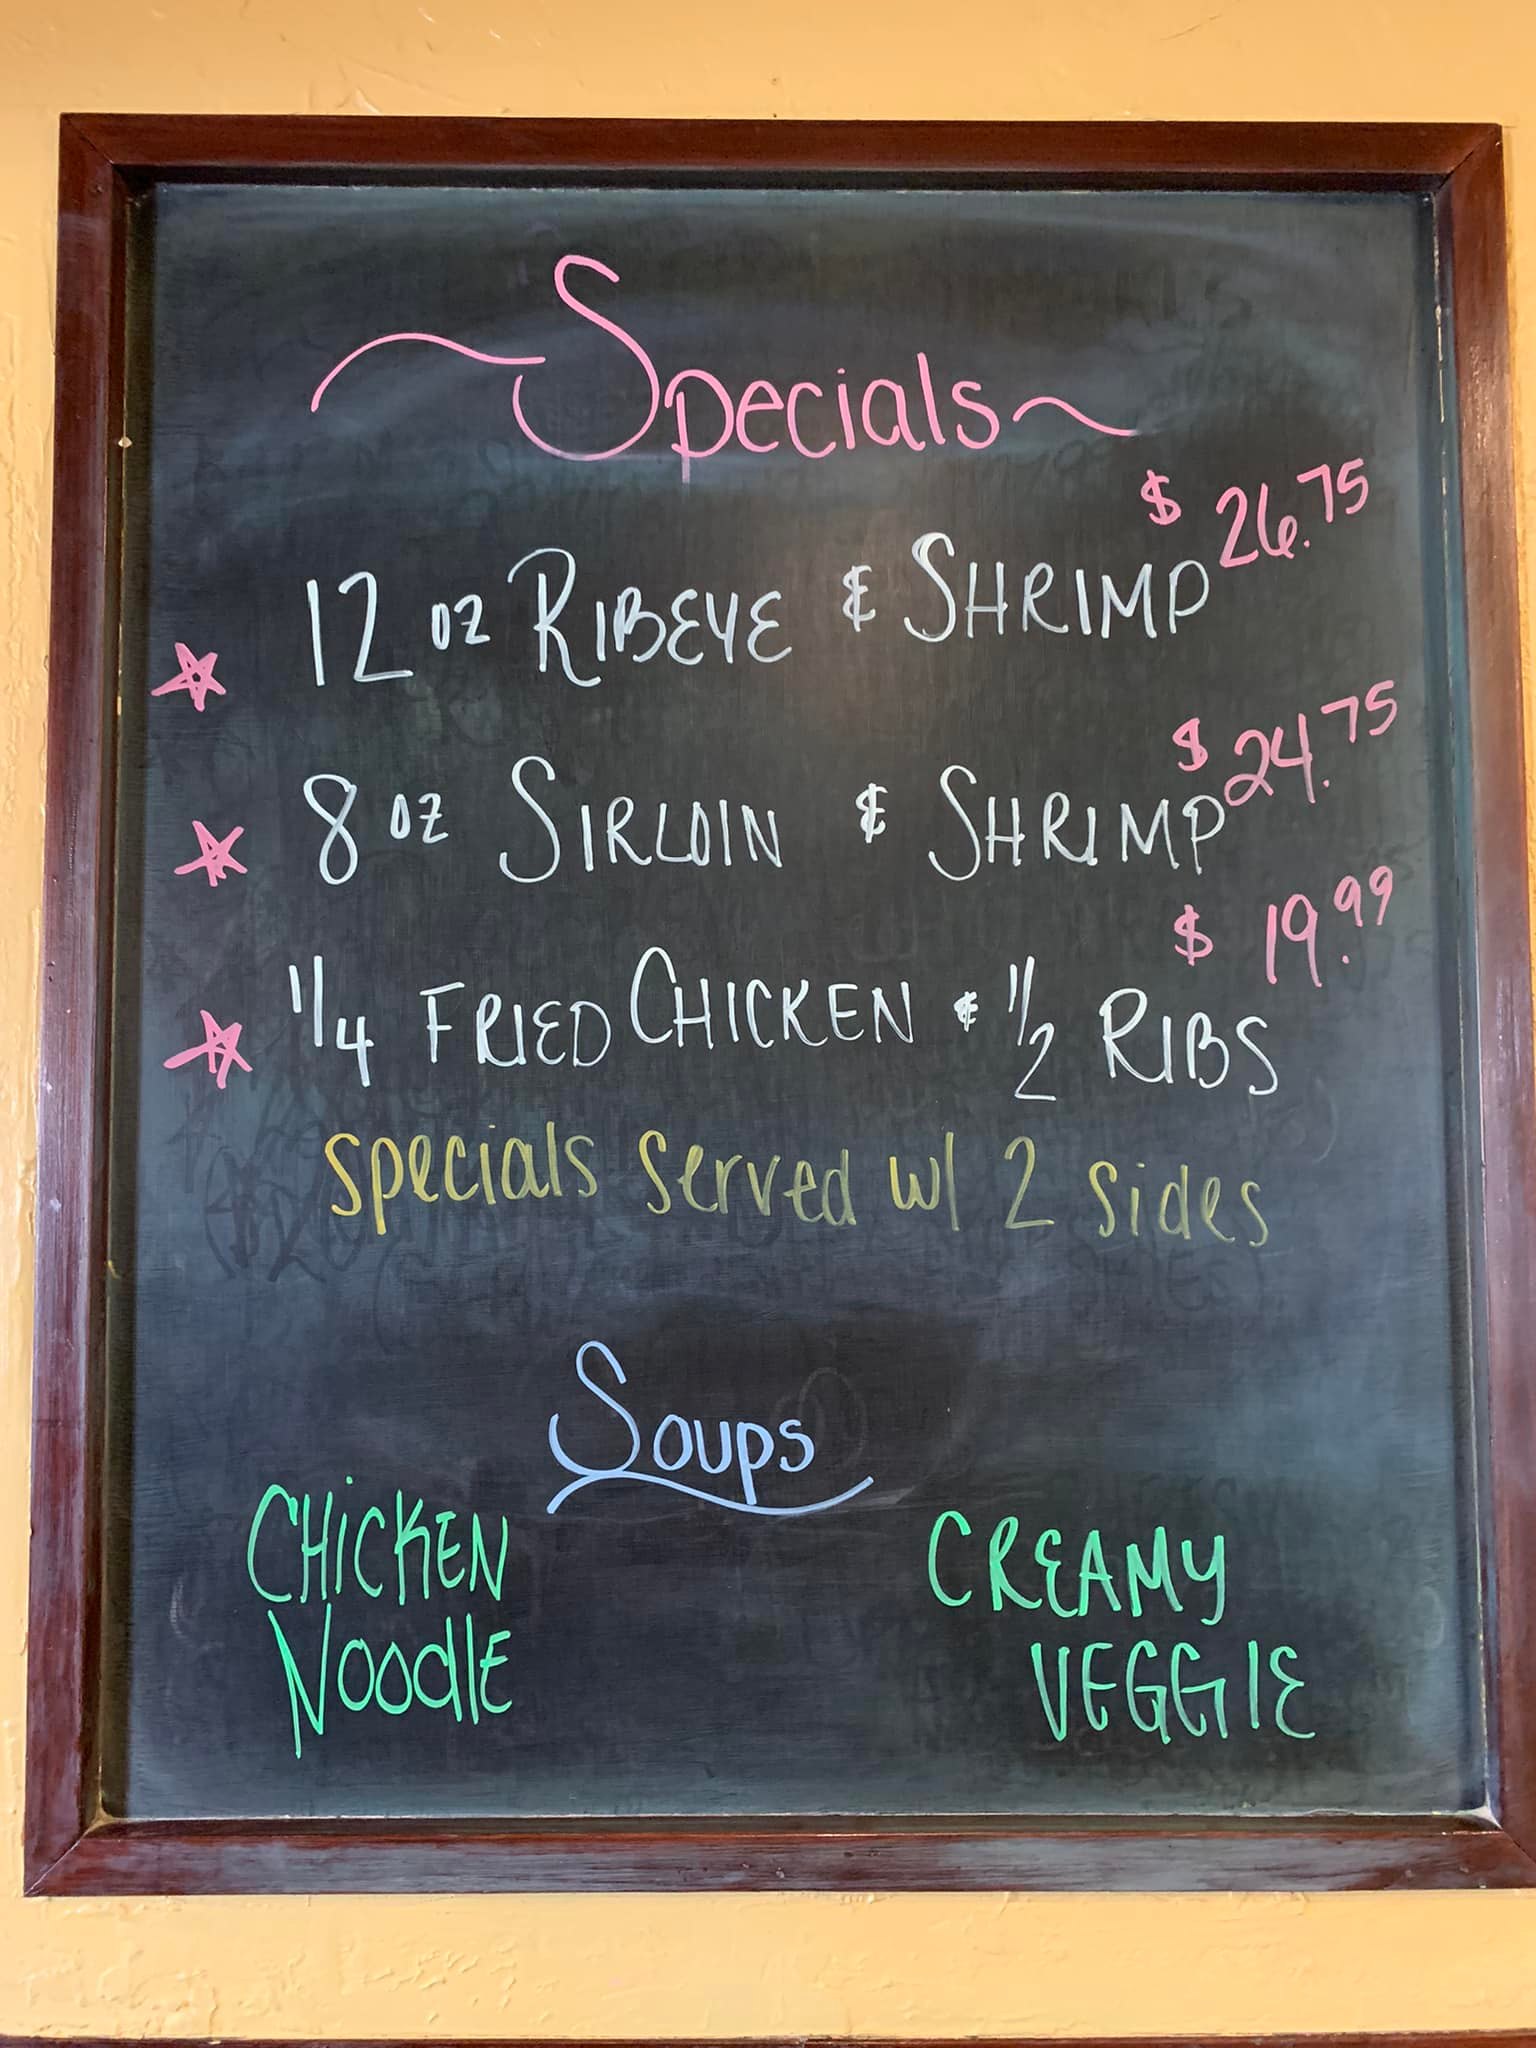 Specials
12 oz RIBEYE & SHRIMP $26.75
8 oz SIRLOIN & SHRIMP $24.75
1/4 FRIED CHICKEN & 1/2 RIBS $19.99
specials served w/ 2 sides
Soups
CHiCKEN
NOOdlE
CREAMY
VEGGIE